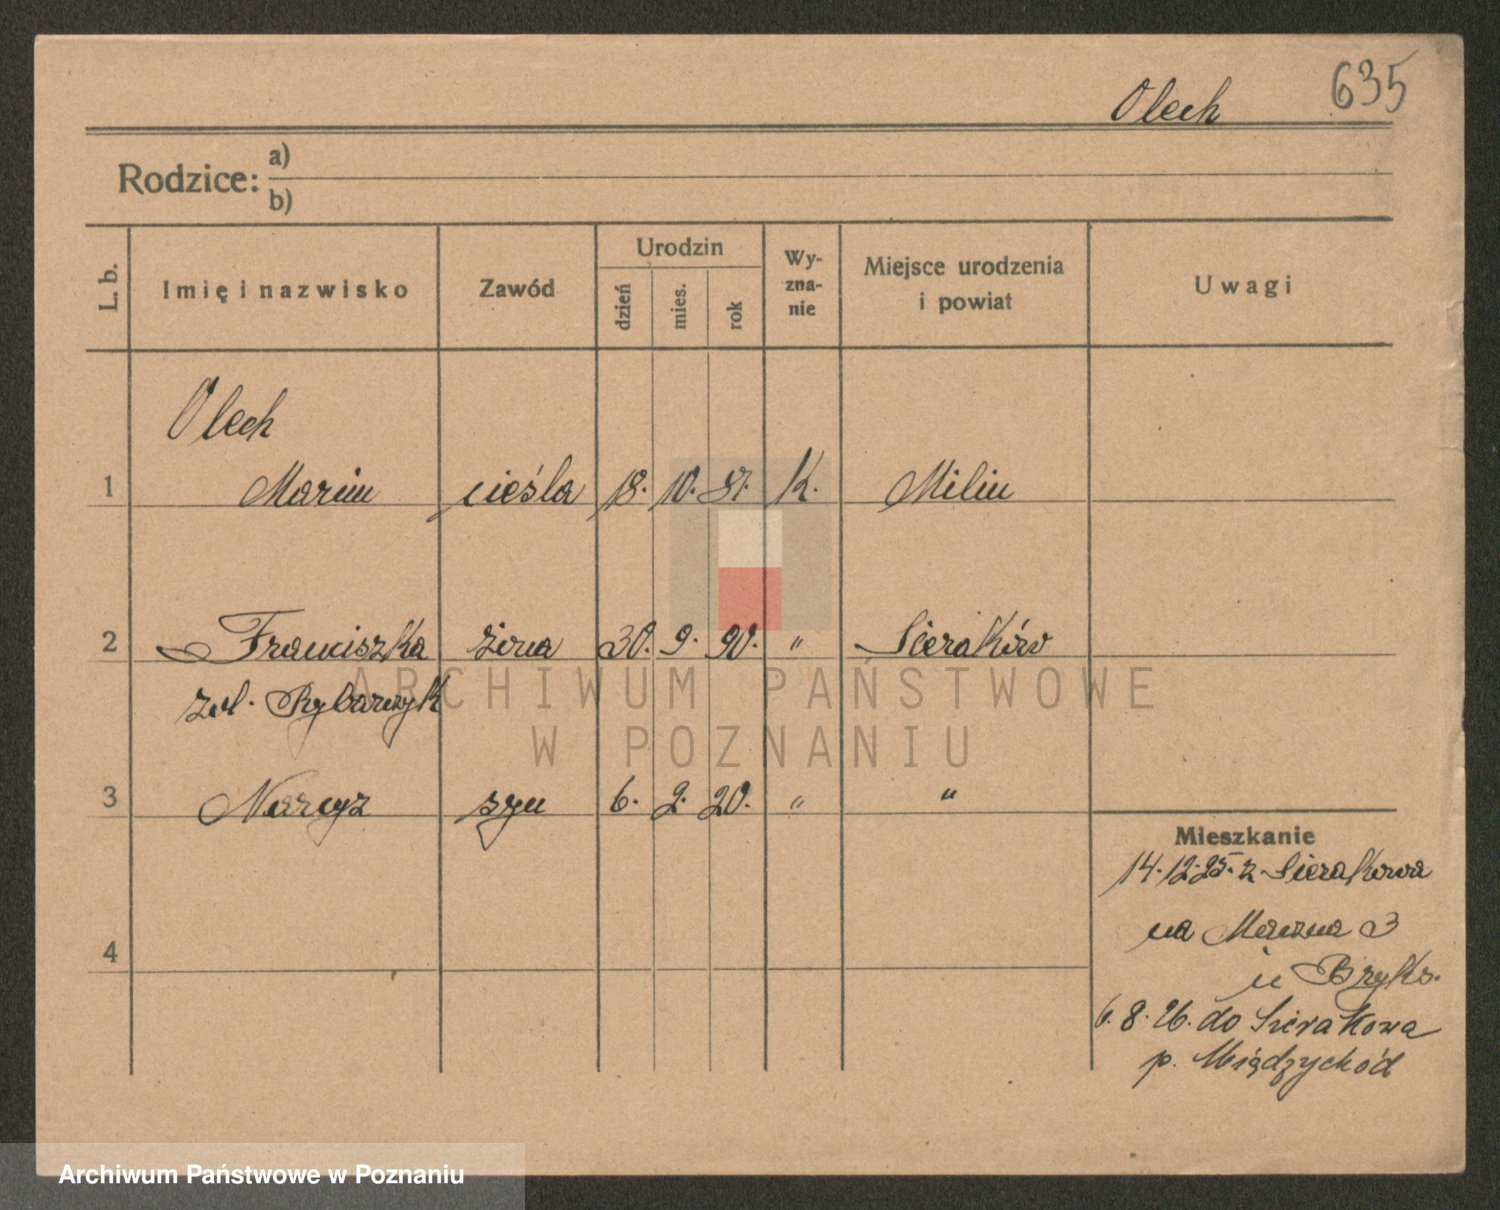 635
Olech
Rodzice: a)
b)
L. b. Imię i nazwisko Zawód Urodzin dzień mies. rok Wy-zna-nie Miejsce urodzenia i powiat Uwagi
Olech
1 Marcin cieśla 18. 10. 87. K. Milin
2 Franciszka żona 30. 9. 90. " Sieraków
zd. Rybarczyk
3 Narcyz syn 6. 2. 20. " "
4
Mieszkanie
14.12.25. z Sierakowa
na 3
u
6.8.26. do Sierakowa
p. Międzychód
ARCHIWUM PAŃSTWOWE
W POZNANIU
Archiwum Państwowe w Poznaniu